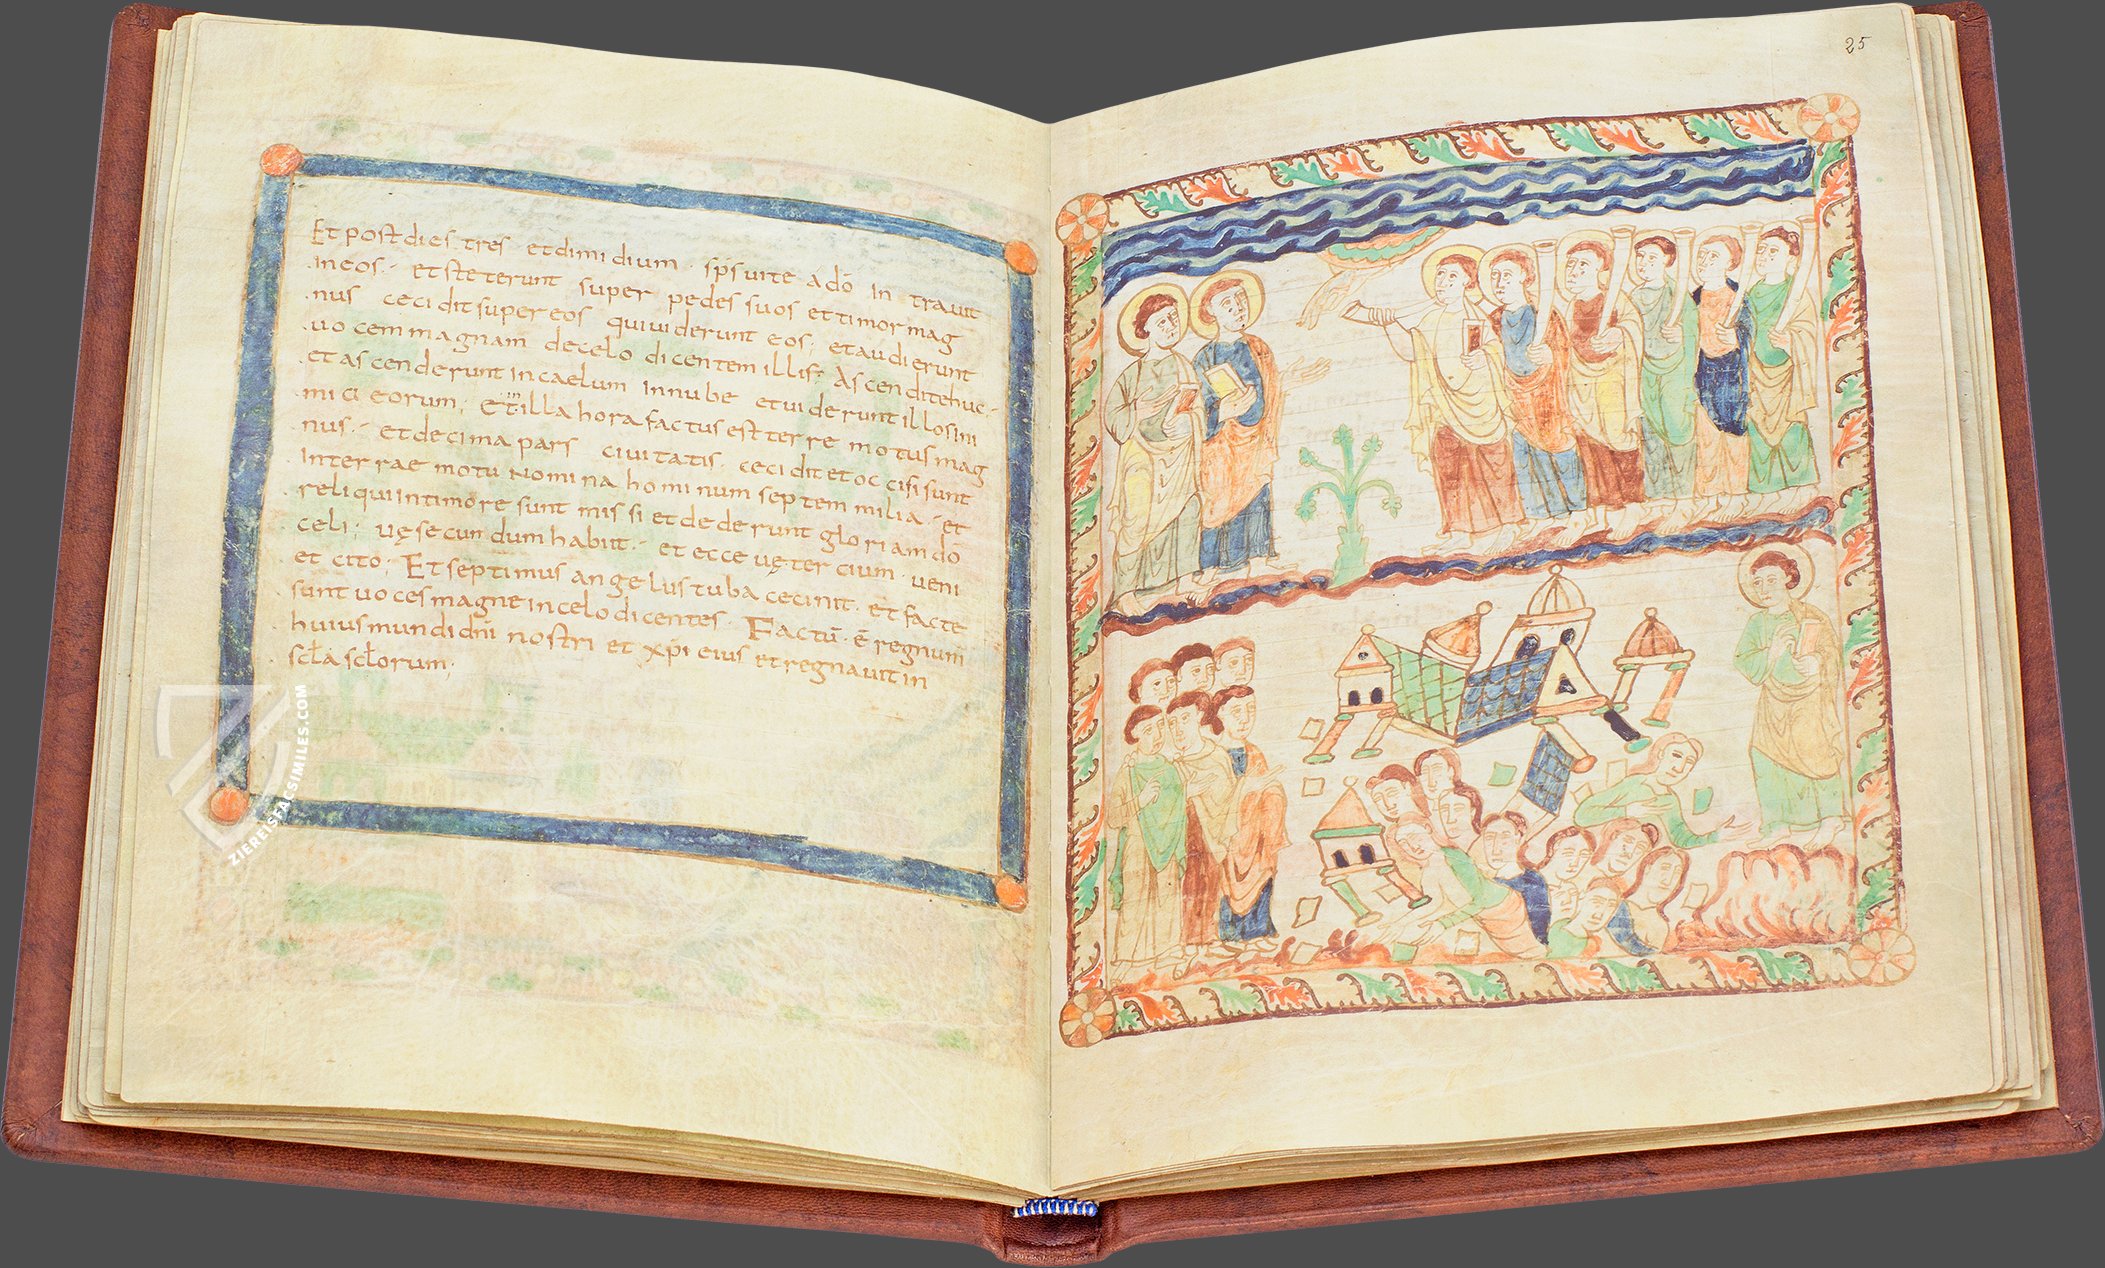 Et post dies tres et dimidium · sps uite a dō intrauit
in eos · et steterunt super pedes suos et timor mag
nus cecidit super eos qui uiderunt eos ; et audierunt
uocem magnam de celo dicentem illis ; Ascendite huc ·
et ascenderunt in caelum in nube et uiderunt illos ini
mici eorum ; Et in illa hora factus est terre motus mag
nus · et decima pars ciuitatis · cecidit et occisi sunt
in terrae motu nomina hominum septem milia · et
reliqui in timore sunt missi et dederunt gloriam dō
celi ; uę secundum habiit · et ecce uę tercium · ueni
et cito ; Et septimus angelus tuba cecinit · et facte
sunt uoces magne in celo dicentes · Factū · ē regnum
huius mundi dn̄i nostri et xp̄i eius et regnauit in
scl̄a scl̄orum ;
25
ZIEREISFACSIMILES.COM